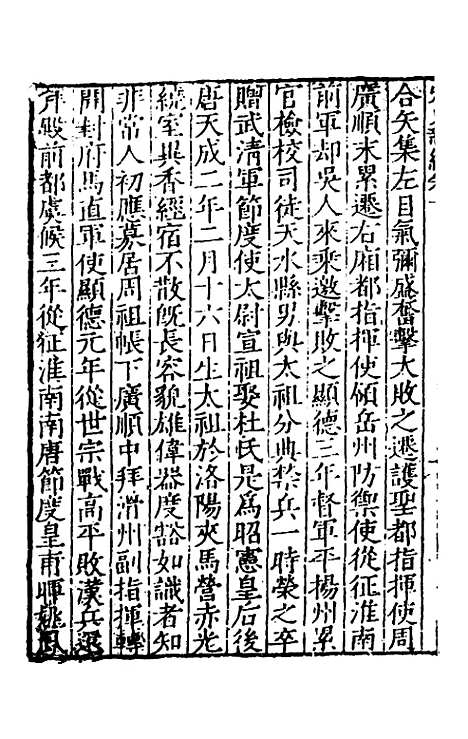 合矢集左目氣彌盛奮擊大敗之遷護聖都指揮使周
廣順末累遷右廂都指揮使領岳州防禦使從征淮南
前軍却吳人來乘邀擊敗之顯德三年督軍平揚州累
官檢校司徒天水縣男與太祖分典禁兵一時榮之卒
贈武清軍節度使太尉宣祖娶杜氏是爲昭憲皇后後
唐天成二年二月十六日生太祖於洛陽夾馬營赤光
繞室異香經宿不散旣長容貌雄偉器度豁如識者知
非常人初應募居周祖帳下廣順中拜滑州副指揮轉
開封府馬直軍使顯德元年從世宗戰高平敗漢兵
拜殿前都虞候三年從征淮南南唐節度皇甫暉姚鳳